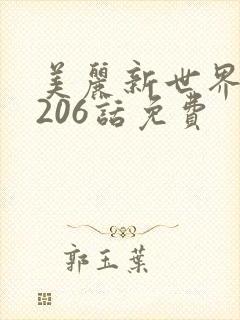 美麗新世界
206話免費
郭玉葉